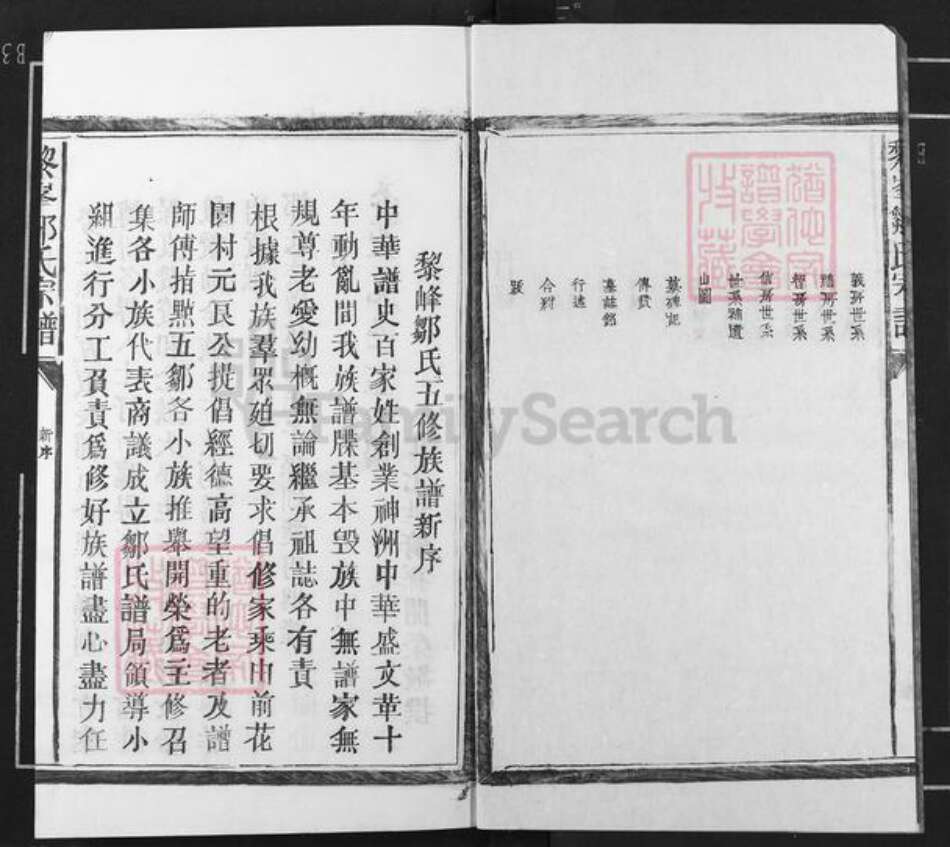 黎峰鄒氏宗譜
義房世系
禮房世系
智房世系
信房世系
世系補遺
山圖
墓碑記
傳贊
墓誌銘
行述
合約
跋
黎峰鄒氏五修族譜新序
中華譜史百家姓創業神洲中華盛文華十
年動亂間我族譜牒基本毀族中無譜家無
規尊老愛幼概無論繼承祖誌各有責
根據我族羣眾廹切要求倡修家乘由前花
園村元良公提倡經德高望重的老者及譜
師傅指點五鄒各小族推舉開榮爲主修召
集各小族代表商議成立鄒氏譜局領導小
組進行分工負責爲修好族譜盡心盡力在
黎峰鄒氏宗譜
新序
猶他家
譜學會
收藏
FamilySearch